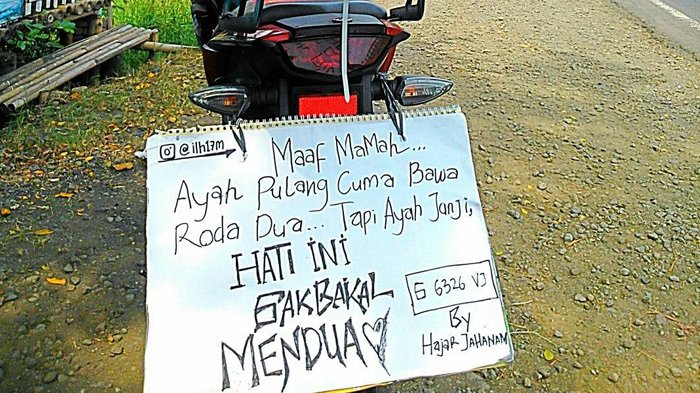 @ilh17m
Maaf Mamah...
Ayah Pulang Cuma Bawa
Roda Dua... Tapi Ayah Janji,
HATI iNi
GAK BAKAL
MENDUA
G 6326 VJ
By
Hajar JAHANAM